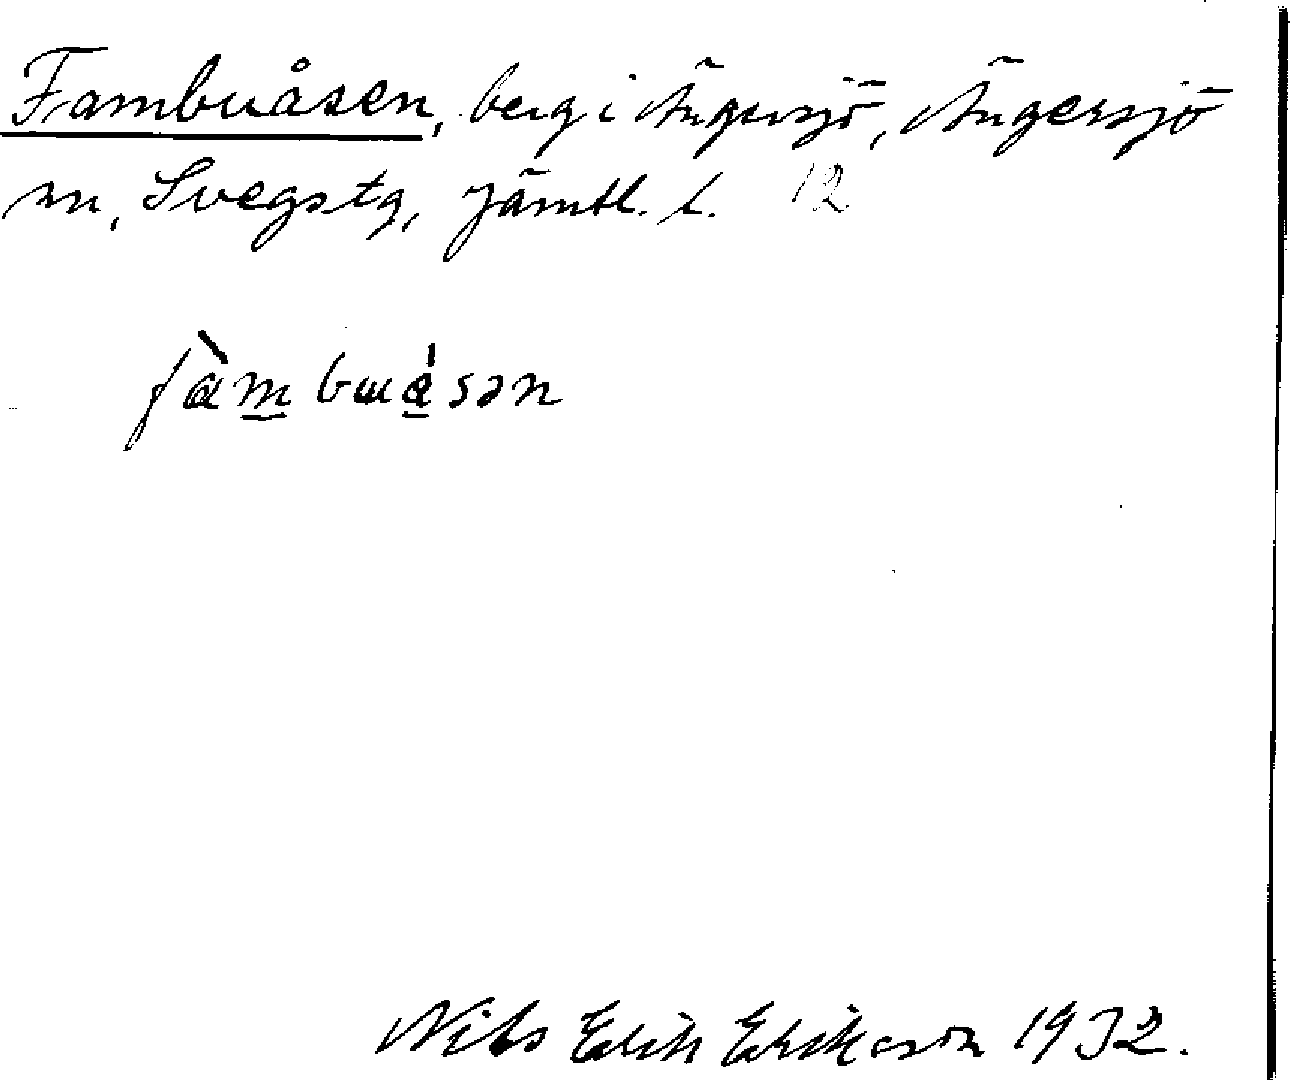 Fambuåsen, berg i Ängersjö, Ängersjö
sn, Svegs tg, Jämtl. l. 12
fàm buɯásən
Nils Erik Eriksson 1932.